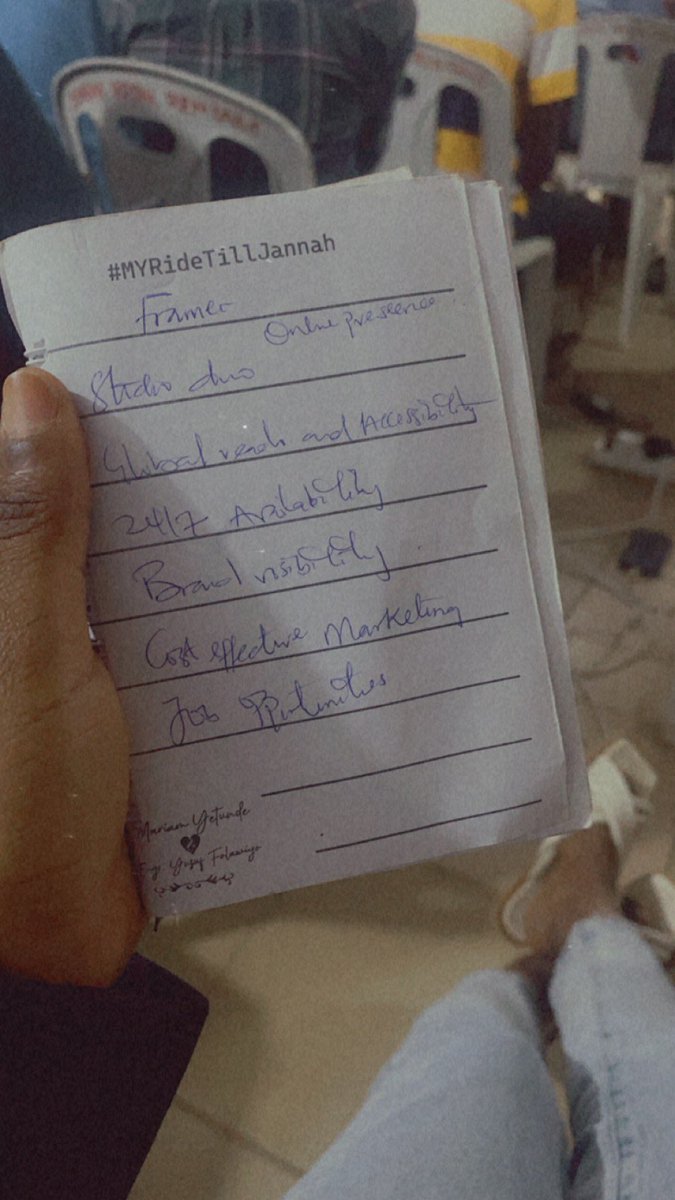 #MYRideTillJannah
Framer
Online presence
Studio duo
Global reach and Accessibility
24/7 Availability
Brand visibility
Cost effective Marketing
Job
Mariam Yetunde
Yusuf Folawiyo